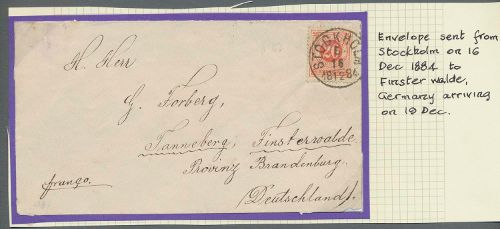 H. Herr
G. Forberg,
Tanneberg, Finsterwalde
Provinz Brandenburg.
(Deutschland).
franco.
STOCKHOLM
16
1884
Envelope sent from
Stockholm on 16
Dec 1884 to
Finster walde,
Germany arriving
on 19 Dec.